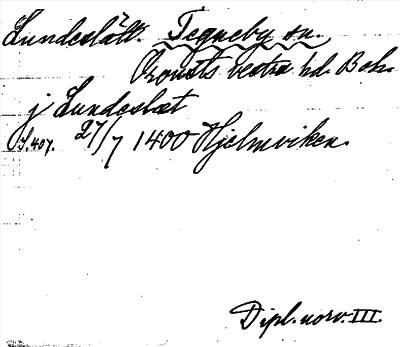 Lundeslätt. Tegneby sn.
Orousts vestra hd. Boh.
j Lundeslæt
S. 407. 27/7 1400 Hjelmviken.
Dipl. norv. III.